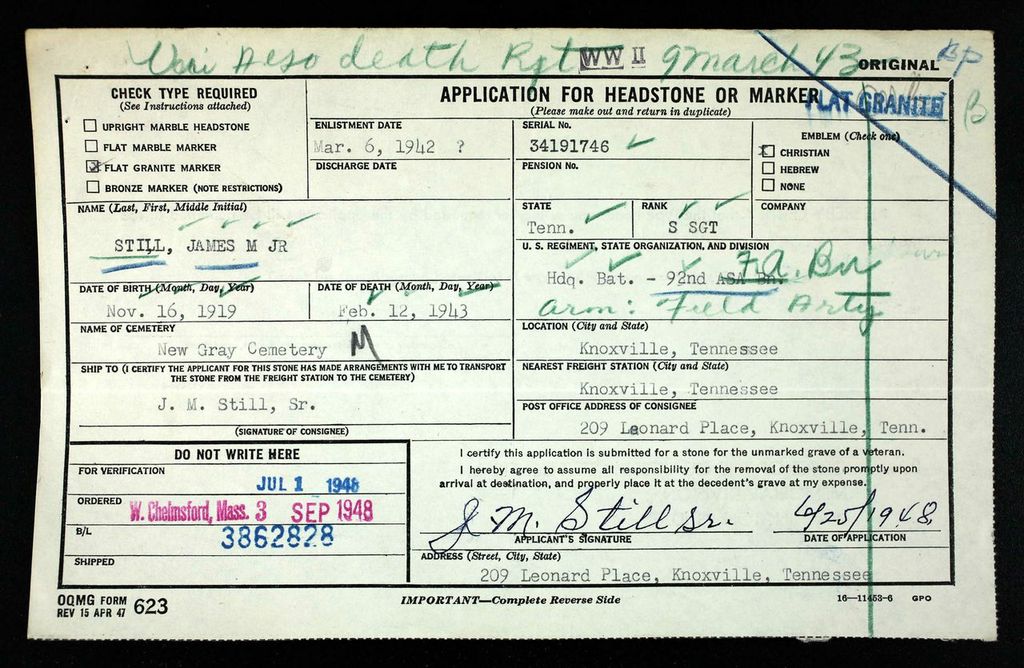 Veri Aeso death Rpt WW II 9 March 43 ORIGINAL BP
CHECK TYPE REQUIRED
(See Instructions attached)
UPRIGHT MARBLE HEADSTONE
FLAT MARBLE MARKER
FLAT GRANITE MARKER
BRONZE MARKER (NOTE RESTRICTIONS)
APPLICATION FOR HEADSTONE OR MARKER
(Please make out and return in duplicate)
FLAT GRANITE B
ENLISTMENT DATE
Mar. 6, 1942 ?
DISCHARGE DATE
SERIAL No.
34191746
PENSION No.
EMBLEM (Check one)
CHRISTIAN
HEBREW
NONE
NAME (Last, First, Middle Initial)
STILL, JAMES M JR
STATE
Tenn.
RANK
S SGT
COMPANY
U. S. REGIMENT, STATE ORGANIZATION, AND DIVISION
Hdq. Bat. - 92nd ASA Bn. F.A. Bn
arm: Field Arty
DATE OF BIRTH (Month, Day, Year)
Nov. 16, 1919
DATE OF DEATH (Month, Day, Year)
Feb. 12, 1943
NAME OF CEMETERY
New Gray Cemetery M
LOCATION (City and State)
Knoxville, Tennessee
SHIP TO (I CERTIFY THE APPLICANT FOR THIS STONE HAS MADE ARRANGEMENTS WITH ME TO TRANSPORT
THE STONE FROM THE FREIGHT STATION TO THE CEMETERY)
J. M. Still, Sr.
(SIGNATURE OF CONSIGNEE)
NEAREST FREIGHT STATION (City and State)
Knoxville, Tennessee
POST OFFICE ADDRESS OF CONSIGNEE
209 Leonard Place, Knoxville, Tenn.
DO NOT WRITE HERE
FOR VERIFICATION
JUL 1 1948
ORDERED
W. Chelmsford, Mass. 3 SEP 1948
B/L
3862828
SHIPPED
I certify this application is submitted for a stone for the unmarked grave of a veteran.
I hereby agree to assume all responsibility for the removal of the stone promptly upon
arrival at destination, and properly place it at the decedent's grave at my expense.
J M. Still Sr. 6/25/1948
APPLICANT'S SIGNATURE
DATE OF APPLICATION
ADDRESS (Street, City, State)
209 Leonard Place, Knoxville, Tennessee
OQMG FORM 623
REV 15 APR 47
IMPORTANT—Complete Reverse Side
16—11453-6 GPO